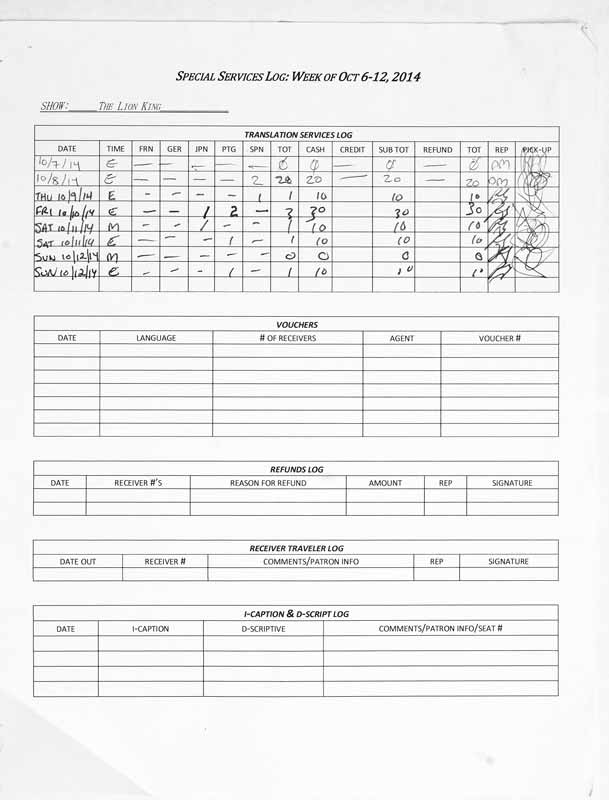 SPECIAL SERVICES LOG: WEEK OF OCT 6-12, 2014
SHOW: THE LION KING
TRANSLATION SERVICES LOG
DATE TIME FRN GER JPN PTG SPN TOT CASH CREDIT SUB TOT REFUND TOT REP PICK-UP
10/7/14 E — — — — — 0 0 — 0 — 0 DM
10/8/14 E — — — — 2 20 20 — 20 — 20 DM
THU 10/9/14 E - - - - 1 1 10 10 10
FRI 10/10/14 E — — 1 2 — 3 30 30 30
SAT 10/11/14 M - - 1 - - 1 10 10 10
SAT 10/11/14 E - - - 1 - 1 10 10 10
SUN 10/12/14 M - - - - - 0 0 0 0
SUN 10/12/14 E - - - 1 - 1 10 10 10
VOUCHERS
DATE LANGUAGE # OF RECEIVERS AGENT VOUCHER #
REFUNDS LOG
DATE RECEIVER #'S REASON FOR REFUND AMOUNT REP SIGNATURE
RECEIVER TRAVELER LOG
DATE OUT RECEIVER # COMMENTS/PATRON INFO REP SIGNATURE
I-CAPTION & D-SCRIPT LOG
DATE I-CAPTION D-SCRIPTIVE COMMENTS/PATRON INFO/SEAT #